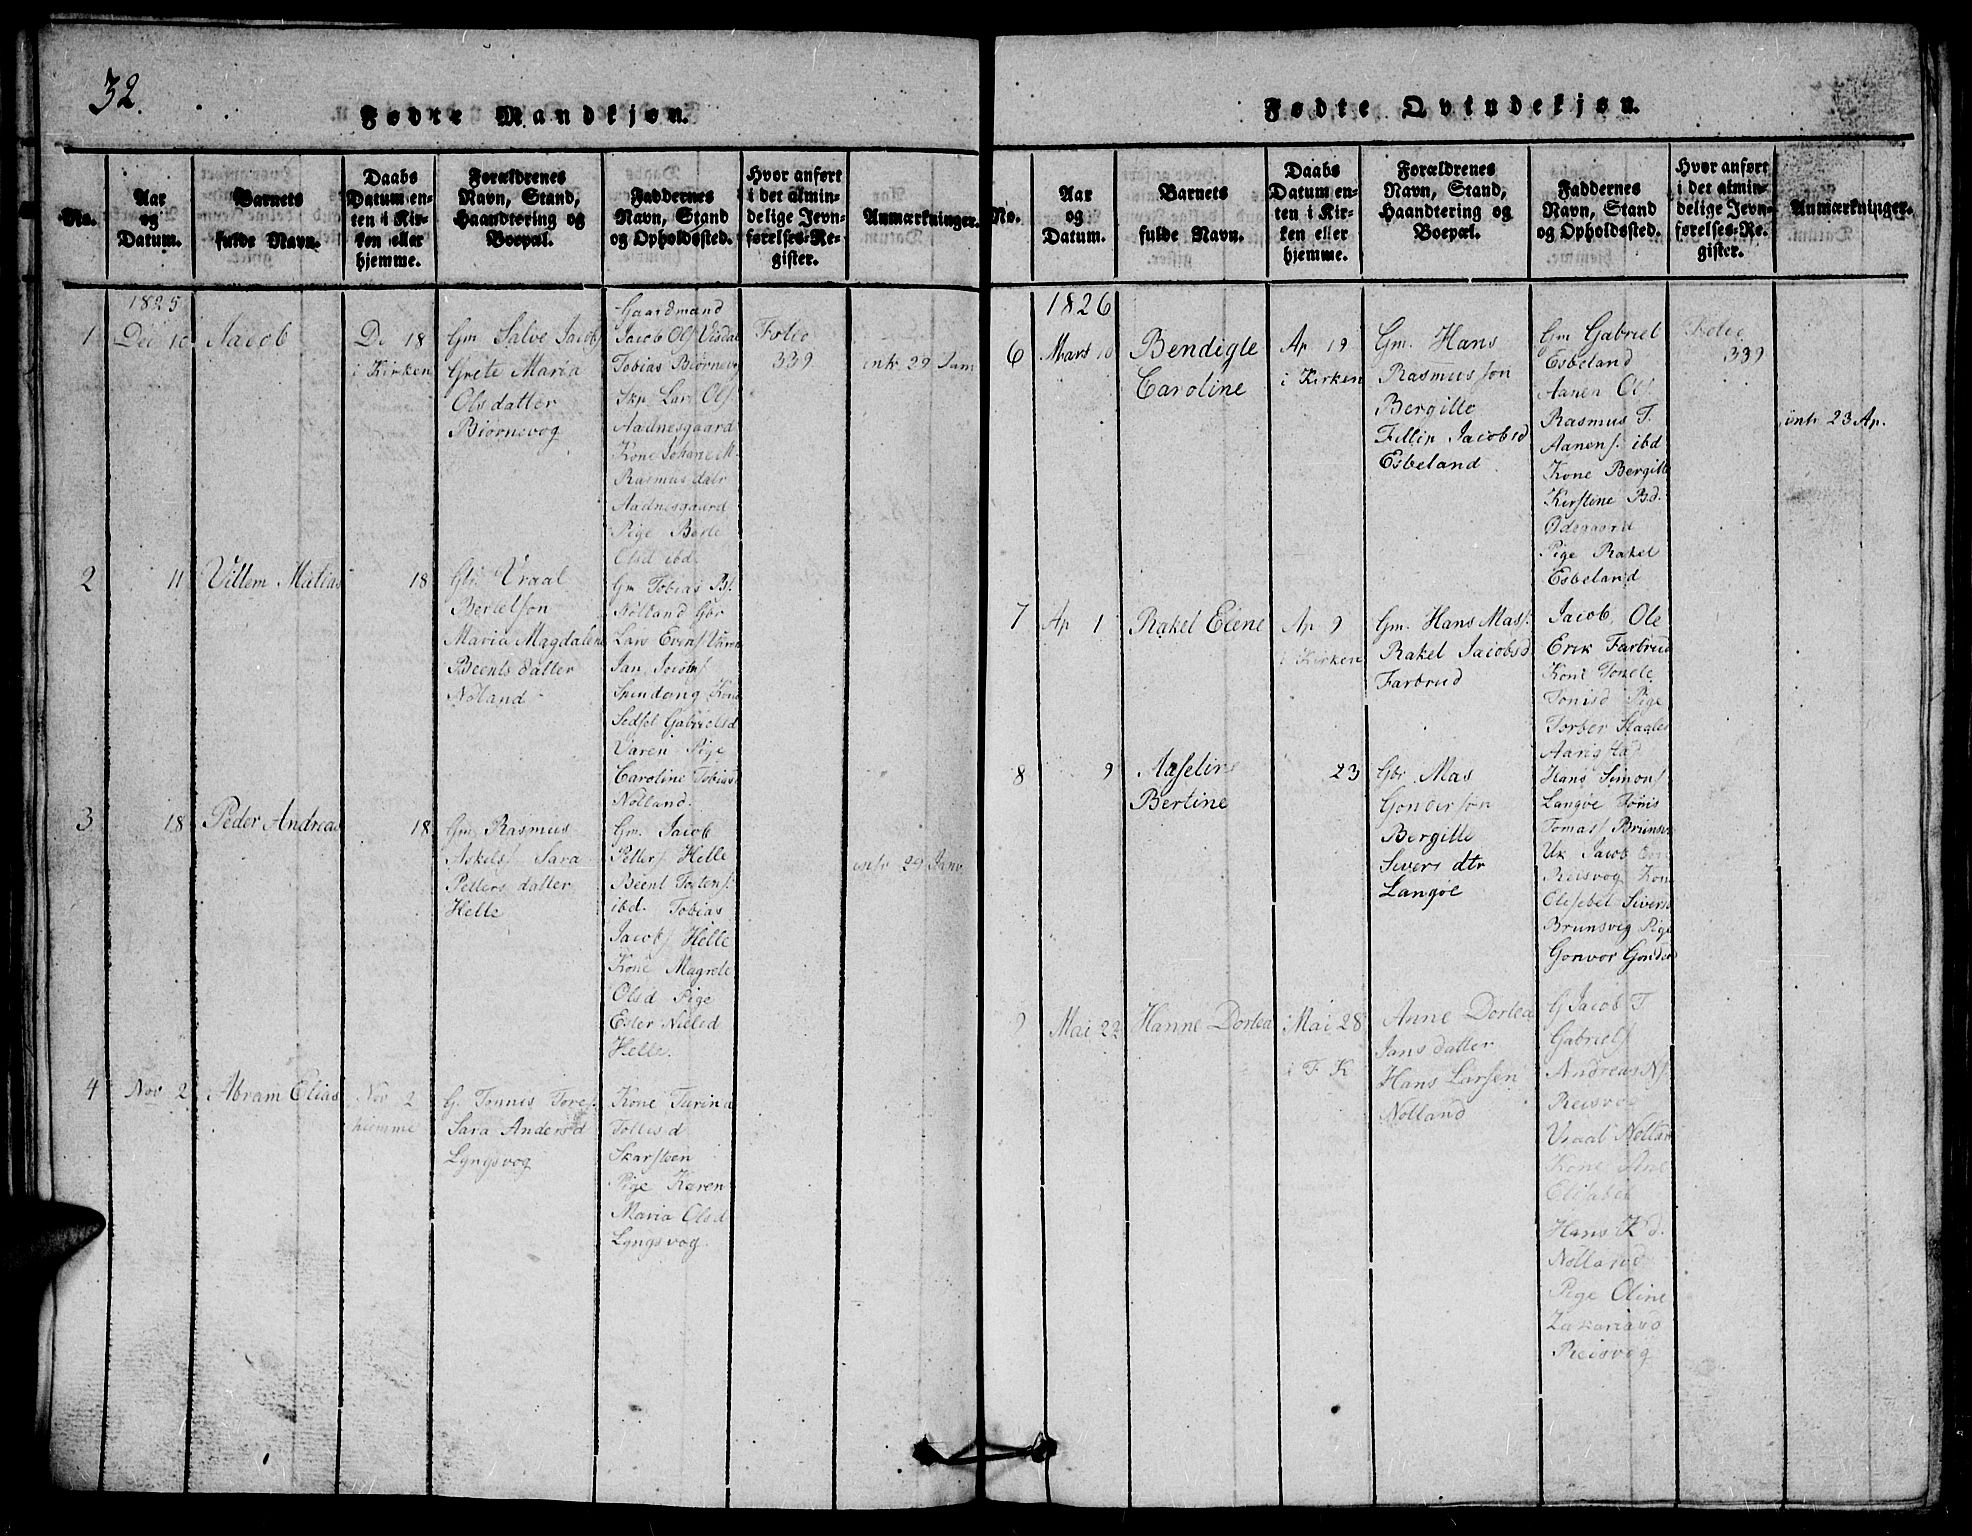 32.
Fødte Mandkjøn.
No.
Aar
og
Datum.
Barnets
fulde Navn.
Daabs
Datum en-
ten i Kir-
ken eller
hjemme.
Forældrenes
Navn, Stand,
Haandtering og
Boepæl.
Faddernes
Navn, Stand
og Opholdssted.
Hvor anført
i det almin-
delige Jevn-
førelses-Re-
gister.
Anmærkninger.
1825
1
Dec 10
Jacob
De 18
i Kirken
Gm Salve Jacobs
Grete Maria
Olsdatter
Biornevog
Gaardmand
Jacob Ols Visdal
Tobias Biornevog
Skp Lars Ols
Aadnesgaard
Kone Johane M
Rasmusdatr
Aadnesgaard
Pige Berte
Olsd ibd
Folio
339
intr 29 Jan
2
11
Villem Matias
18
Gbr Vraal
Bertelsøn
Maria Magdalene
Beents datter
Nøland
Gm Tobias B
Nolland Gbr
Lars Evens Varen
Jan Jacobs
Kone
Gabrielsd
Varen Pige
Caroline Tobias
Nølland.
3
18
Peder Andreas
18
Gm Rasmus
Askels Sara
Petters datter
Helle
Gm. Jacob
Petters Helle
Beent Tostens
ibd. Tobias
Jacobs Helle
Kone Magrete
Olsd Pige
Ester Nielsd
Helle.
intr 29 Janv
4
Nov 2
Abram Elias
Nov 2
hiemme
G. Tonnes Tores
Sara Andersd
Lyngsvog
Kone Turina
Tollisd
Skarsteen
Pige Karen
Maria Olsd
Lyngsvog.
Fødte Qvindekjøn.
No.
Aar
og
Datum.
Barnets
fulde Navn.
Daabs
Datum en-
ten i Kir-
ken eller
hjemme.
Forældrenes
Navn, Stand,
Haandtering og
Boepæl.
Faddernes
Navn, Stand
og Opholdssted.
Hvor anført
i det almin-
delige Jevn-
førelses-Re-
gister.
Anmærkninger.
1826
6
Mart 10
Bendigte
Caroline
Ap 19
i Kirken
Gm. Hans
Rasmussøn
Bergitte
Fillip Jacobsd
Esbeland
Gm Gabriel
Esbeland
Aanen Ols
Rasmus T.
Aanens ibd
Kone Bergitte
Kirstine Bd.
Odegaard
Pige Rakel
Esbeland
Folio
339
intr 23 Ap.
7
Ap 1
Rakel Elene
Ap 9
i Kirken
Gm. Hans Mass
Rakel Jacobsd
Farbrud
Jacob, Ole
Erik Farbrud
Kone Tonele
Tonisd Pige
Torber
8
9
Aaseline
Bertine
23
Gbr Mas
Gondersøn
Bergitte
Sivers dtr
Langoe
Hans Simons
Langoe Tønis
Tomass Brunsv
Uk Jacob
Reisvog Kone
Elisebet Sivers
Brunsvig Pige
Gonvor Gonders
9
Mai 22
Hanne Dortea
Mai 28
i F K
Anne Dortea
Jans datter
Hans Larsen
Nolland
G Jacob T
Gabriels
Andreas Ns
Reisvog
Vraal Nolland
Kone Ane
Elisabet
Hans K d.
Nolland
Pige Oline
Zakarias
Reisvog